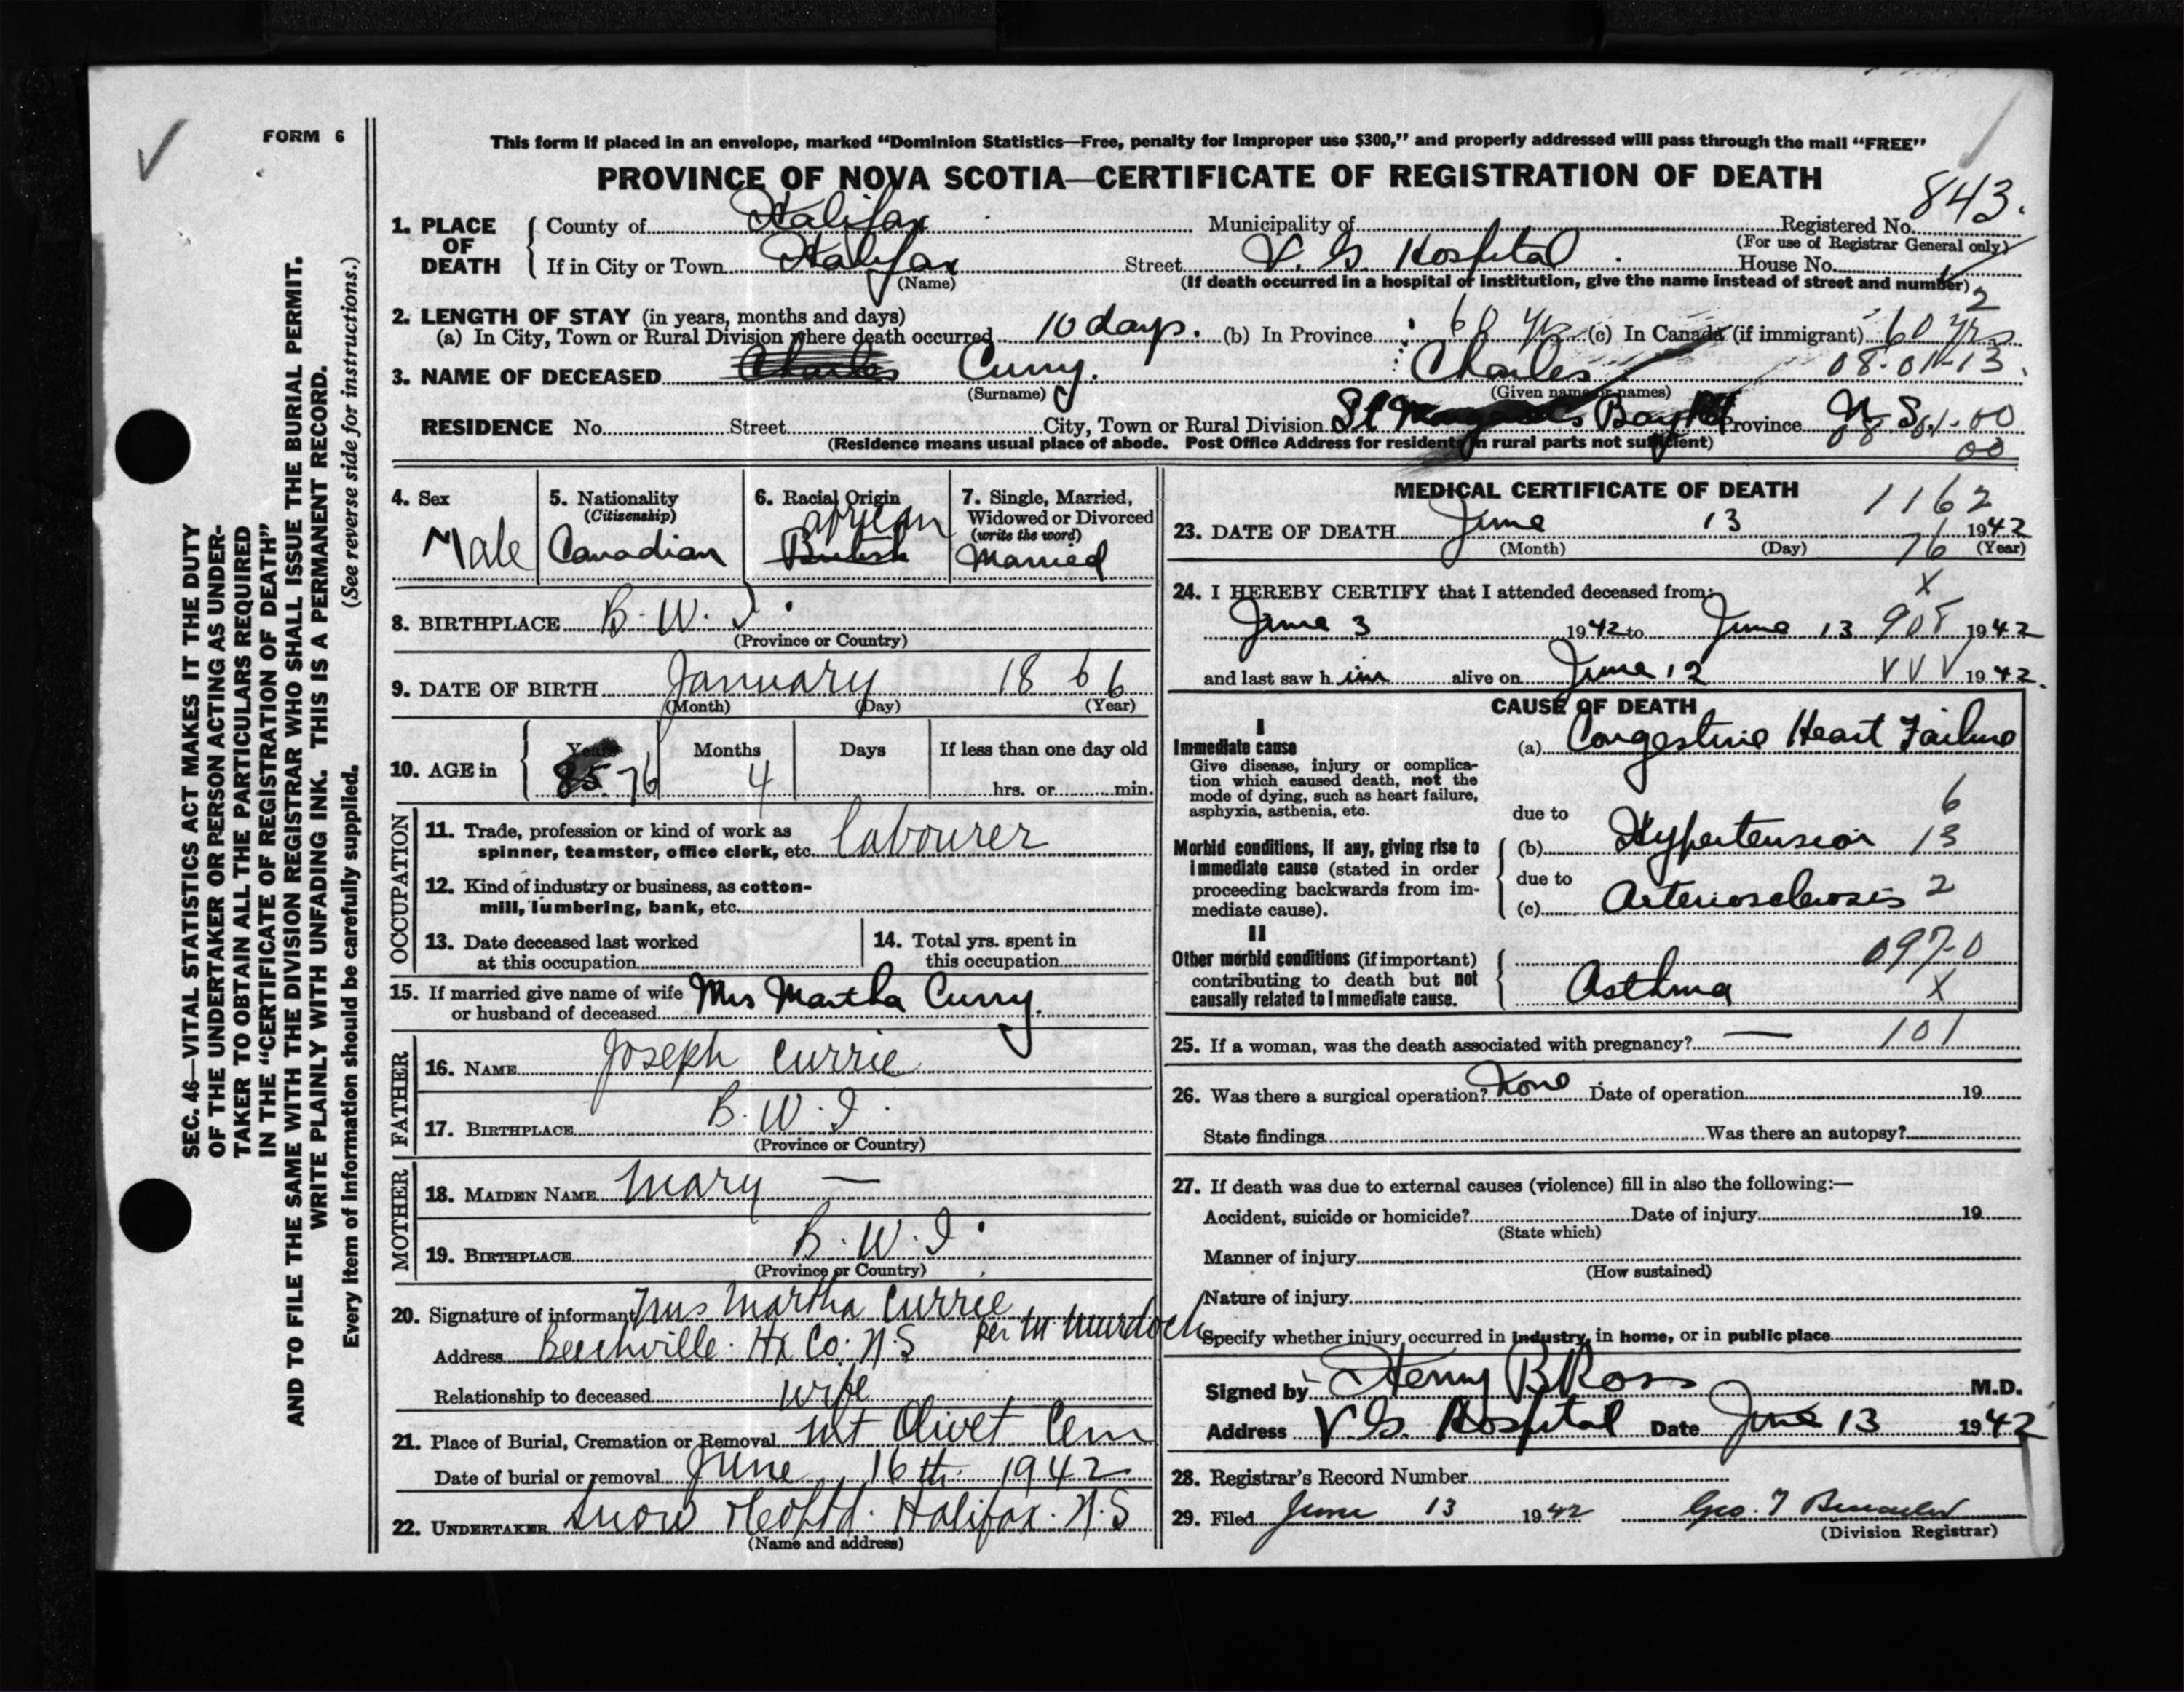 FORM 6
This form if placed in an envelope, marked "Dominion Statistics—Free, penalty for improper use $300," and properly addressed will pass through the mail "FREE"
PROVINCE OF NOVA SCOTIA—CERTIFICATE OF REGISTRATION OF DEATH
843.
1. PLACE OF DEATH { County of Halifax Municipality of Registered No.
(For use of Registrar General only)
If in City or Town Halifax Street V. G. Hospital House No.
(Name) (If death occurred in a hospital or institution, give the name instead of street and number)
2
2. LENGTH OF STAY (in years, months and days)
(a) In City, Town or Rural Division where death occurred 10 days. (b) In Province 60 yrs (c) In Canada (if immigrant) 60 yrs
08-01-13.
3. NAME OF DECEASED Charles Curry. Charles
(Surname) (Given name or names)
RESIDENCE No. Street City, Town or Rural Division St Margarets Bay Rd Province N. S.
(Residence means usual place of abode. Post Office Address for residents in rural parts not sufficient)
00
4. Sex
Male
5. Nationality
(Citizenship)
Canadian
6. Racial Origin
African
British
7. Single, Married,
Widowed or Divorced
(write the word)
Married
8. BIRTHPLACE B. W. I.
(Province or Country)
9. DATE OF BIRTH January 1866
(Month) (Day) (Year)
10. AGE in { Years Months Days If less than one day old
85 76 4 hrs. or min.
OCCUPATION
11. Trade, profession or kind of work as
spinner, teamster, office clerk, etc. labourer
12. Kind of industry or business, as cotton-
mill, lumbering, bank, etc.
13. Date deceased last worked
at this occupation
14. Total yrs. spent in
this occupation
15. If married give name of wife
or husband of deceased Mrs Martha Curry.
FATHER
16. NAME Joseph Currie
17. BIRTHPLACE B. W. I.
(Province or Country)
MOTHER
18. MAIDEN NAME Mary —
19. BIRTHPLACE B. W. I.
(Province or Country)
20. Signature of informant Mrs Martha Currie
per M Murdoch
Address Beechville. Hx Co. N S
Relationship to deceased wife
21. Place of Burial, Cremation or Removal Mt Olivet Cem
Date of burial or removal June, 16th. 1942
22. UNDERTAKER Snow & Co Ltd. Halifax. N. S
(Name and address)
MEDICAL CERTIFICATE OF DEATH
1162
23. DATE OF DEATH June 13 1942
(Month) (Day) (Year)
76
24. I HEREBY CERTIFY that I attended deceased from:
X
June 3 1942 to June 13 908 1942
and last saw h im alive on June 12 VVV 1942.
CAUSE OF DEATH
I
Immediate cause
Give disease, injury or complica-
tion which caused death, not the
mode of dying, such as heart failure,
asphyxia, asthenia, etc.
(a) Congestive Heart Failure
6
due to
Morbid conditions, if any, giving rise to
immediate cause (stated in order
proceeding backwards from im-
mediate cause).
(b) Hypertension 13
due to
(c) Arteriosclerosis 2
II
Other morbid conditions (if important)
contributing to death but not
causally related to immediate cause.
097-0
Asthma X
25. If a woman, was the death associated with pregnancy? — 101
26. Was there a surgical operation? None Date of operation 19
State findings Was there an autopsy?
27. If death was due to external causes (violence) fill in also the following:—
Accident, suicide or homicide? Date of injury 19
(State which)
Manner of injury
(How sustained)
Nature of injury
Specify whether injury occurred in industry, in home, or in public place
Signed by Henry B Ross M.D.
Address V. G. Hospital Date June 13 1942
28. Registrar's Record Number
29. Filed June 13 1942 Geo. T
(Division Registrar)
SEC. 46—VITAL STATISTICS ACT MAKES IT THE DUTY
OF THE UNDERTAKER OR PERSON ACTING AS UNDER-
TAKER TO OBTAIN ALL THE PARTICULARS REQUIRED
IN THE "CERTIFICATE OF REGISTRATION OF DEATH"
AND TO FILE THE SAME WITH THE DIVISION REGISTRAR WHO SHALL ISSUE THE BURIAL PERMIT.
WRITE PLAINLY WITH UNFADING INK. THIS IS A PERMANENT RECORD.
Every item of information should be carefully supplied. (See reverse side for instructions.)